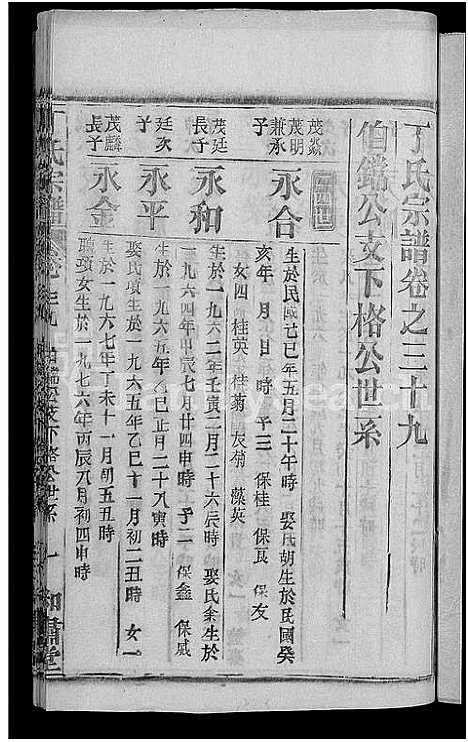 丁氏宗譜卷之三十九
伯鐺公支下格公世系
茂燚
茂明
兼承
子
永合
生於民國己巳年五月二十午時 娶氏胡生於民國癸
亥年 月 日 時 子三 保桂 保良 保友
女四 桂英 桂菊 友菊 藻英
茂廷
長子
永和
生於一九六二年壬寅二月二十六辰時 娶氏余生於
一九六四年甲辰七月廿四申時 子二 保鑫 保威
廷次
子
永平
生於一九六五年乙巳正月二十八寅時
娶氏項生於一九六五年乙巳十一月初二丑時 女一
茂麟
長子
永金
生於一九六七年丁未十一月初五丑時
聘項女生於一九七六年丙辰八月初四申時
丁氏宗譜 卷之卅九 伯鐺公支下格公世系 一